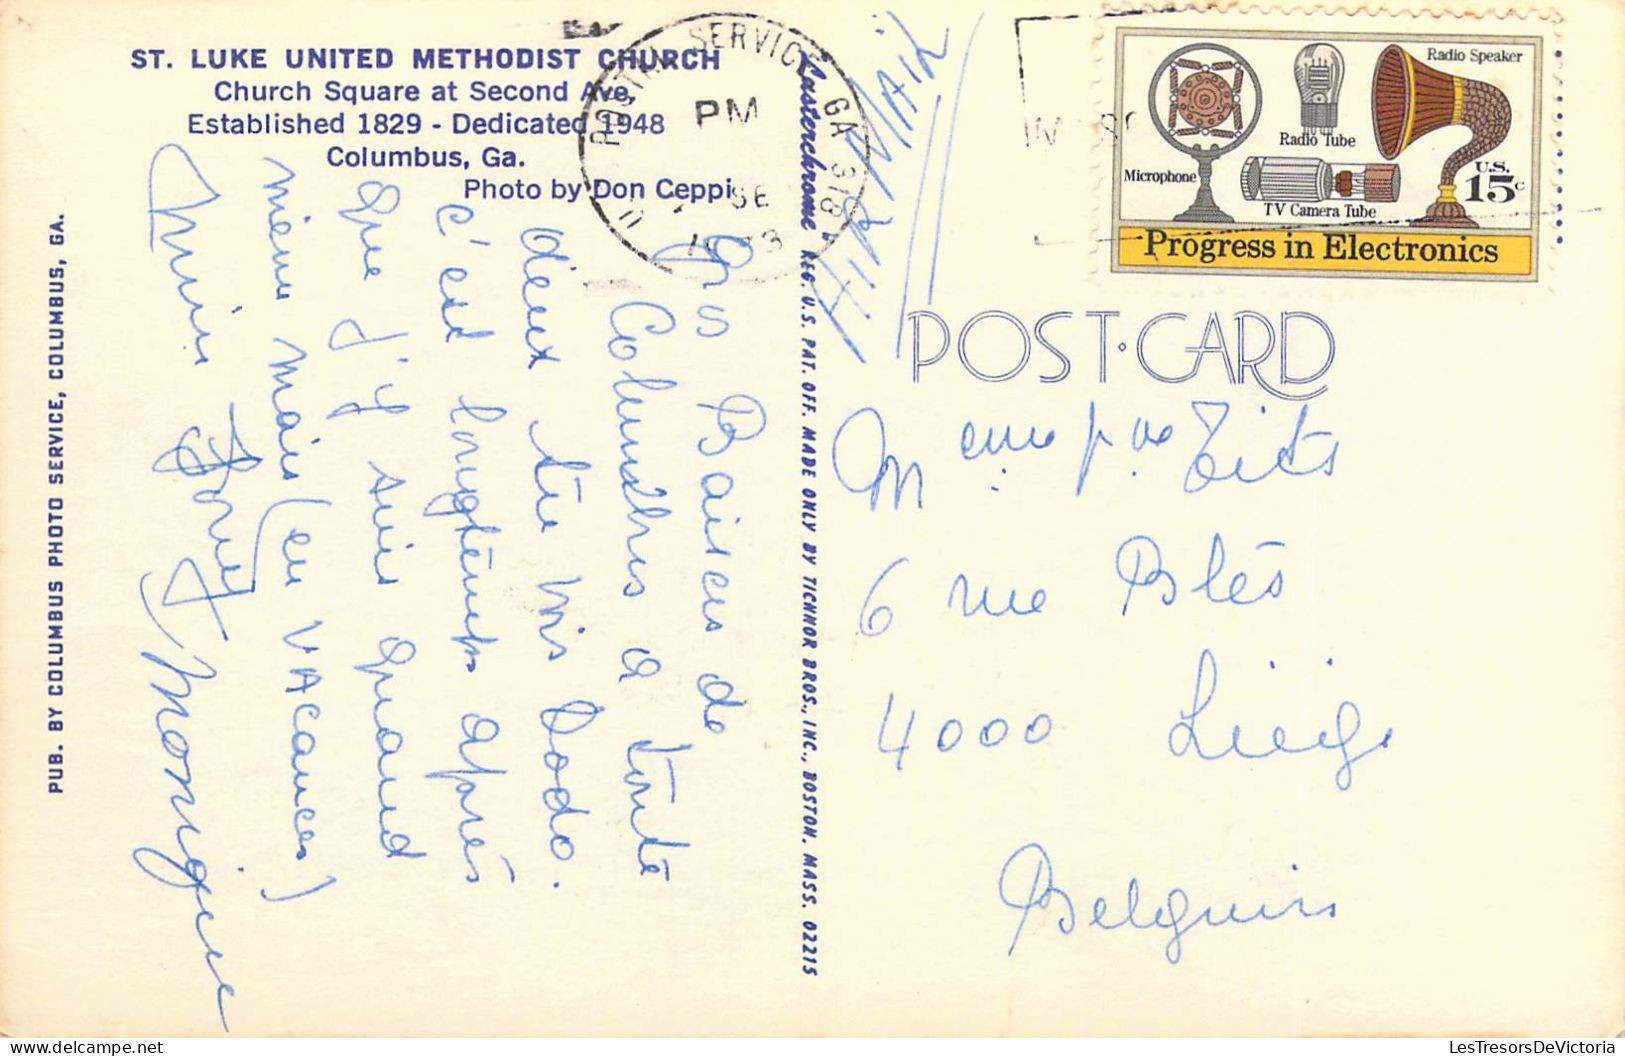 ST. LUKE UNITED METHODIST CHURCH
Church Square at Second Ave.
Established 1829 - Dedicated 1948
Columbus, Ga.
Photo by Don Ceppi
PUB. BY COLUMBUS PHOTO SERVICE, COLUMBUS, GA.
Gros Baisers de
Columbus a toute
deux
c'est longtemps après
que j'y suis quand
même mais (en VACANCES)
Monique
Lusterchrome REG. U.S. PAT. OFF. MADE ONLY BY TICHNOR BROS., INC., BOSTON, MASS. 02215
POSTAL SERVICE GA 318
PM
SE
Radio Speaker
Radio Tube
Microphone
U.S.
15c
TV Camera Tube
Progress in Electronics
POST·CARD
6 rue Blés
4000 Liège
Belgium
LesTresorsDeVictoria